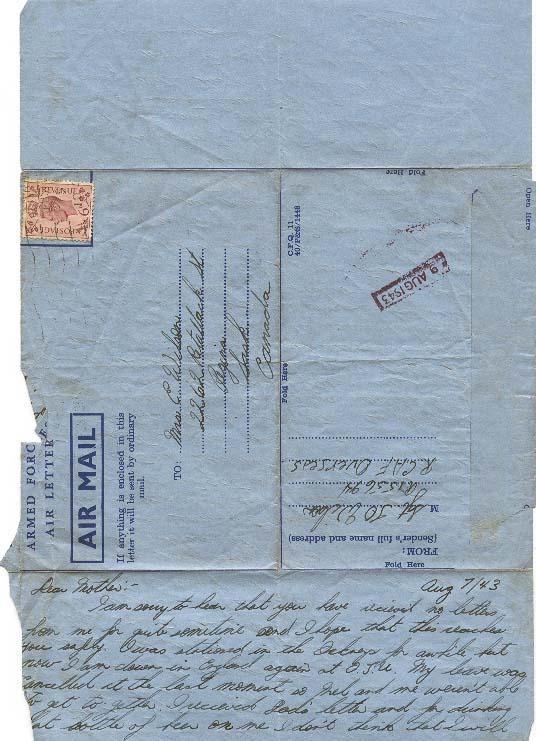 POSTAGE REVENUE
ARMED FORC
AIR LETTER
AIR MAIL
If anything is enclosed in this
letter it will be sent by ordinary
mail.
TO:
Mrs
Regina
Sask
Canada
C.F.Q. 11
40/P&S/1448
9 AUG 1943
Fold Here
Fold Here
Open Here
FROM:
(Sender's full name and address)
M Sgt. J.D.
R155694
R.C.A.F. Overseas
Fold Here
Dear Mother:- Aug 7/43
I am sorry to hear that you have recieved no letters
from me for quite sometime and I hope that this reaches
you safely. I was stationed in the for awhile but
now I am down in England again at O.T.U. My leave was
cancelled at the last moment so and me weren't able
to get to gether. I recieved Dad's letter and for
that bottle of beer on me I don't think that I will